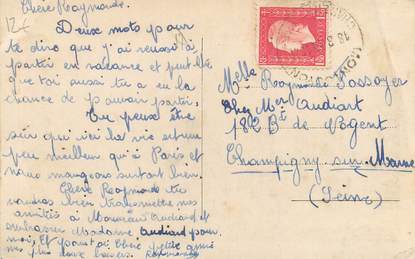 12€
Chère Raymonde.
Deux mots pour
te dire que j'ai reussi à
partir en vacance et peut être
que toi aussi tu a eu la
chance de pouvoir partir.
Tu peux être
sûr que ici la vie est un
peu meilleur qu'à Paris et
nous mangeons surtout bien.
Chère Raymonde tu
voudras bien transmettre mes
amitiés à Monsieur Audiard et
embrasser Madame Audiard pour
moi, Et quant à toi Chère petite amie
mes plus doux baisers.
Melle Raymonde
Chez Mr Audiart
182 Bd de Nogent
Champigny sur Marne
(Seine)